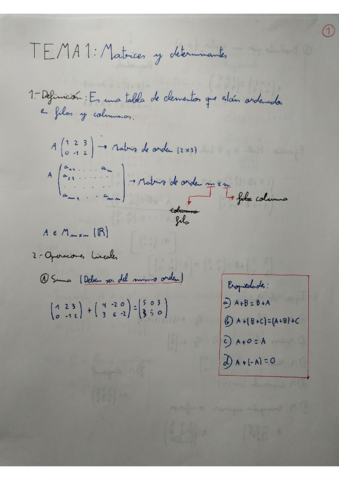 1
TEMA 1: Matrices y determinantes
1.- Definición: Es una tabla de elementos que están ordenado
en filas y columnas.
A (1 2 3
0 -1 2) → Matriz de orden (2x3)
A → Matriz de orden m x n
columna fila columna
fila
A ∈ M m x n (R)
2.- Operaciones Lineales
a) Suma (Deben ser del mismo orden)
(1 2 3
0 -1 2) + (4 -2 0
3 6 -2) = (5 0 3
3 5 0)
Propiedades:
a) A+B = B+A
b) A+(B+C)=(A+B)+C
c) A+0 = A
d) A+(-A)=0